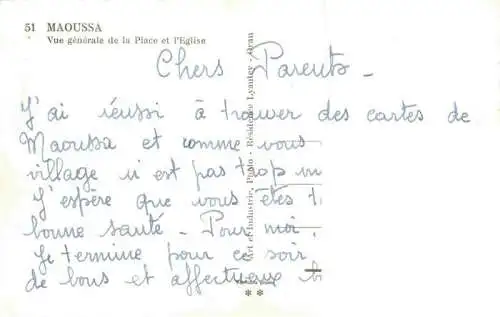 51 MAOUSSA
Vue générale de la Place et l'Eglise
Chers Parents -
J'ai réussi à trouver des cartes de
Maoussa et comme vous
village n'est pas trop
J'espère que vous êtes
bonne santé - Pour moi,
Je termine pour ce soir
de bons et affectueux
Art et Industrie, Photo - Résidence Lyautey - Oran